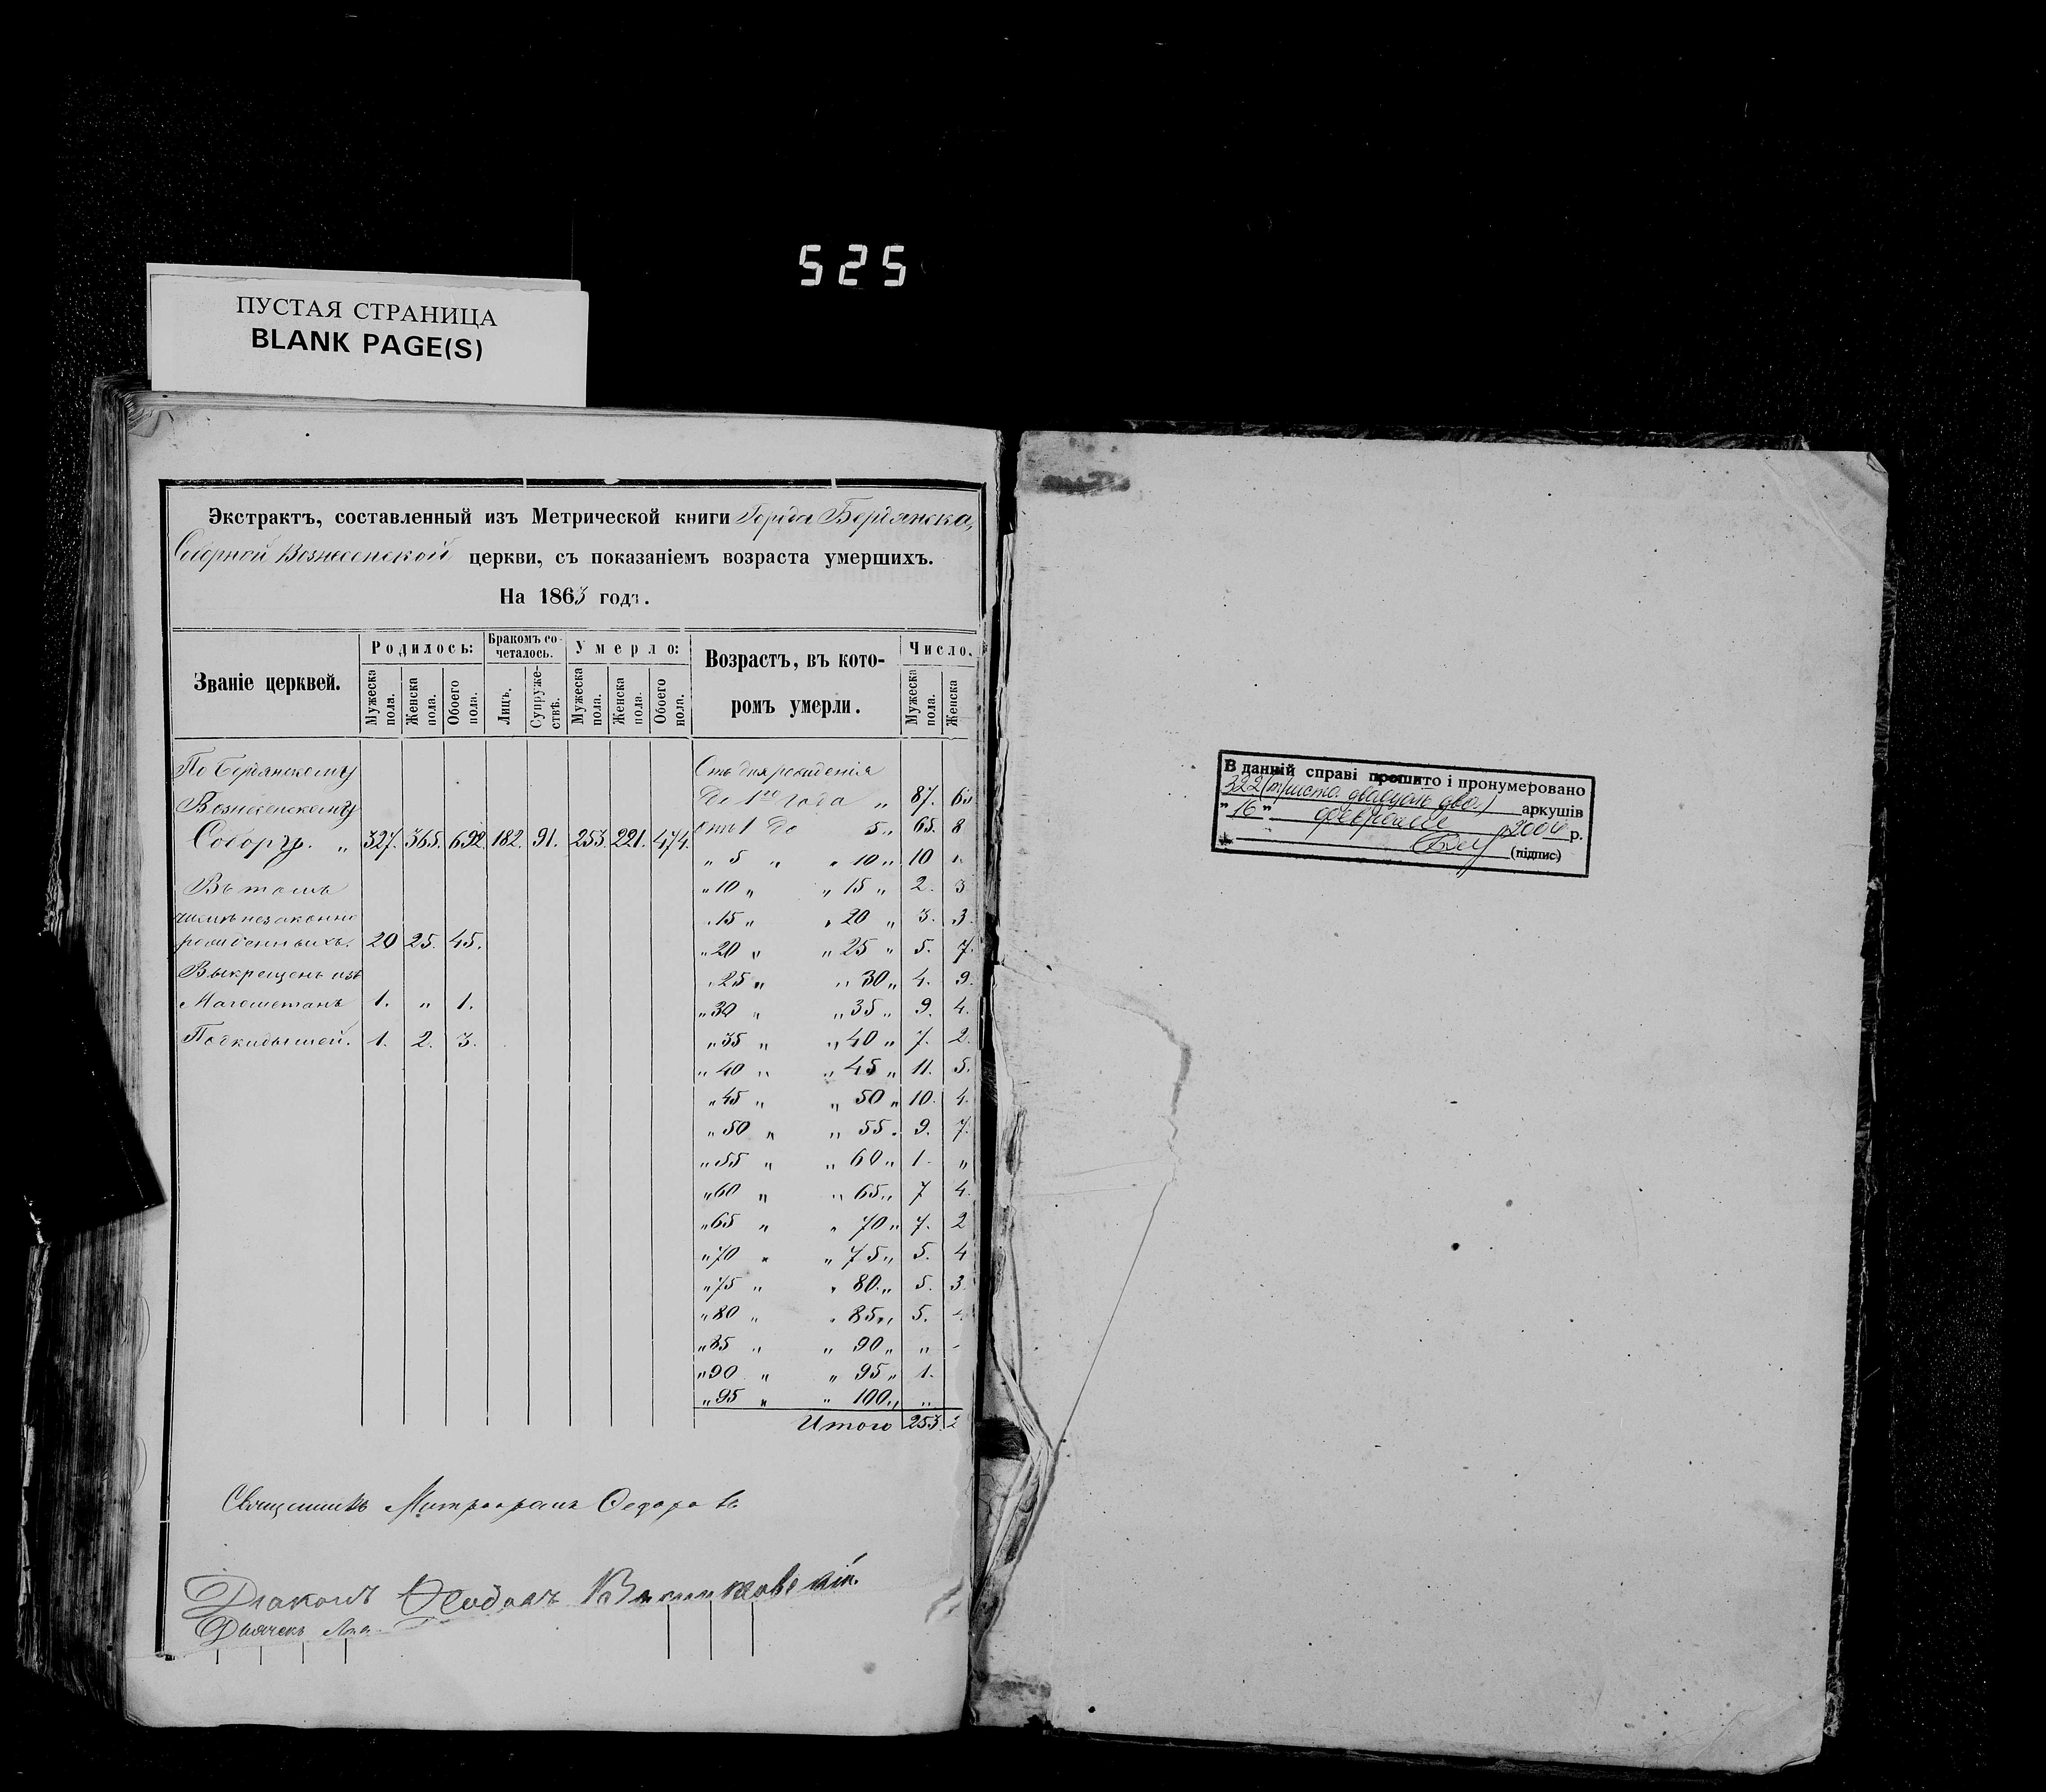 525
ПУСТАЯ СТРАНИЦА
BLANK PAGE(S)
Экстрактъ, составленный изъ Метрической книги Города Бердянска,
Соборной Вознесенской церкви, съ показаніемъ возраста умершихъ.
На 1863 годъ.
Званіе церквей. Родилось: Бракомъ сочеталось. Умерло: Возрастъ, въ которомъ умерли. Число.
Мужеска пола. Женска пола. Обоего пола. Лицъ. Супружествъ. Мужеска пола. Женска пола. Обоего пола. Мужеска пола. Женска
По Бердянскому
Вознесенскому
Собору. „ 327. 365. 692. 182. 91. 253. 221. 474.
Въ томъ
числѣ незаконно
рожденныхъ. 20 25. 45.
Выкрещенъ изъ
Магометанъ 1. „ 1.
Подкидышей. 1. 2. 3.
Отъ дня рожденія
до 1го года „ 87.
отъ 1 до 5 „ 65. 8
„ 5 „ „ 10 „ 10
„ 10 „ „ 15 „ 2. 3
„ 15 „ „ 20 „ 3. 3.
„ 20 „ „ 25 „ 5. 7.
„ 25 „ „ 30 „ 4. 9.
„ 30 „ „ 35 „ 9. 4.
„ 35 „ „ 40 „ 7. 2.
„ 40 „ „ 45 „ 11. 5.
„ 45 „ „ 50 „ 10. 4.
„ 50 „ „ 55 „ 9. 7.
„ 55 „ „ 60 „ 1. „
„ 60 „ „ 65 „ 7 4.
„ 65 „ „ 70 „ 7. 2
„ 70 „ „ 75 „ 5. 4
„ 75 „ „ 80 „ 5. 3.
„ 80 „ „ 85 „ 5.
„ 85 „ „ 90 „ „
„ 90 „ „ 95 „ 1.
„ 95 „ „ 100 „ „
Итого 253. 2
Священникъ Митрофанъ Федоровъ
Діаконъ
Дьячекъ
В данній справі прошито і пронумеровано
322 (триста двадцать два) аркушів
„ 16 „ февраля 2004 р.
(підпис)